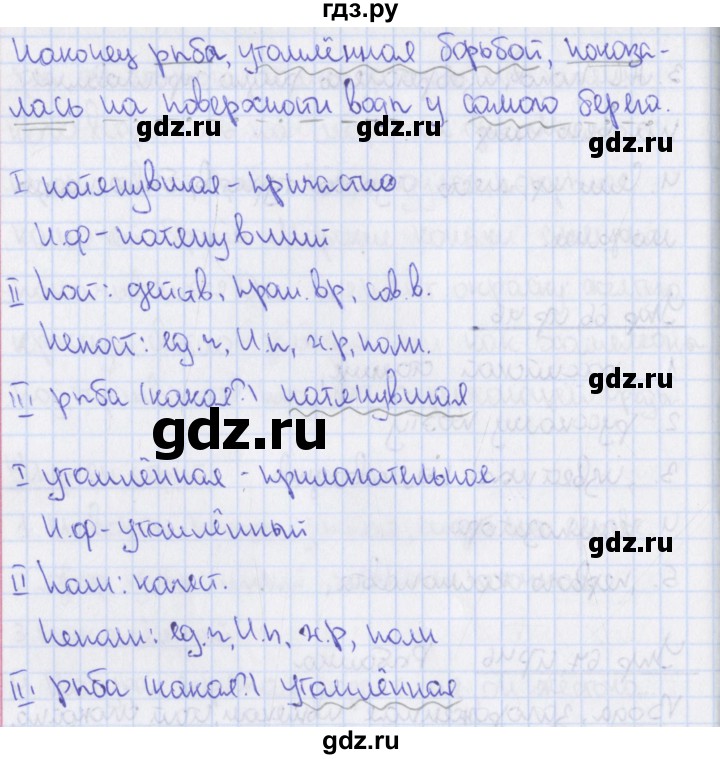 гдз.ру
Наконец рыба, утомлённая борьбой, показа-
лась на поверхности воды у самого берега.
gdz.ru
gdz.ru
gdz.ru
I натянувшая - причастие
Н.ф - натянувший
II Пост: действ, прош. вр, сов.в.
Непост: ед.ч, И.п, ж.р, полн.
gdz.ru
III рыба (какая?) натянувшая
gdz.ru
I утомлённая - прилагательное
Н.ф - утомлённый
gdz.ru
II Полн: качест.
Неполн: ед.ч, И.п, ж.р, полн
III рыба (какая?) утомлённая
gdz.ru
gdz.ru